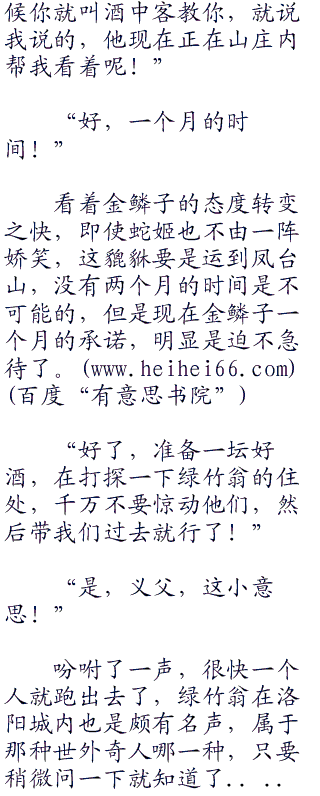 候你就叫酒中客教你，就说
我说的，他现在正在山庄内
帮我看着呢！”
“好，一个月的时
间！”
看着金鳞子的态度转变
之快，即使蛇姬也不由一阵
娇笑，这貔貅要是运到凤台
山，没有两个月的时间是不
可能的，但是现在金鳞子一
个月的承诺，明显是迫不急
待了。(www.heihei66.com)
(百度“有意思书院”)
“好了，准备一坛好
酒，在打探一下绿竹翁的住
处，千万不要惊动他们，然
后带我们过去就行了！”
“是，义父，这小意
思！”
吩咐了一声，很快一个
人就跑出去了，绿竹翁在洛
阳城内也是颇有名声，属于
那种世外奇人哪一种，只要
稍微问一下就知道了．．．．